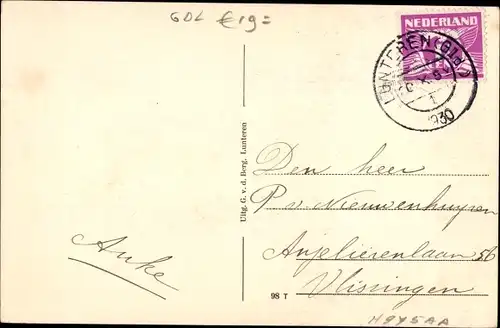 GDL €19=
NEDERLAND
LUNTEREN (Gld.)
1930
Uitg. G. v. d. Berg. Lunteren
Den heer
P v. Nieuwenhuyzen
Anjelierenlaan 56
Vlissingen
Anke
98 T
H875AA